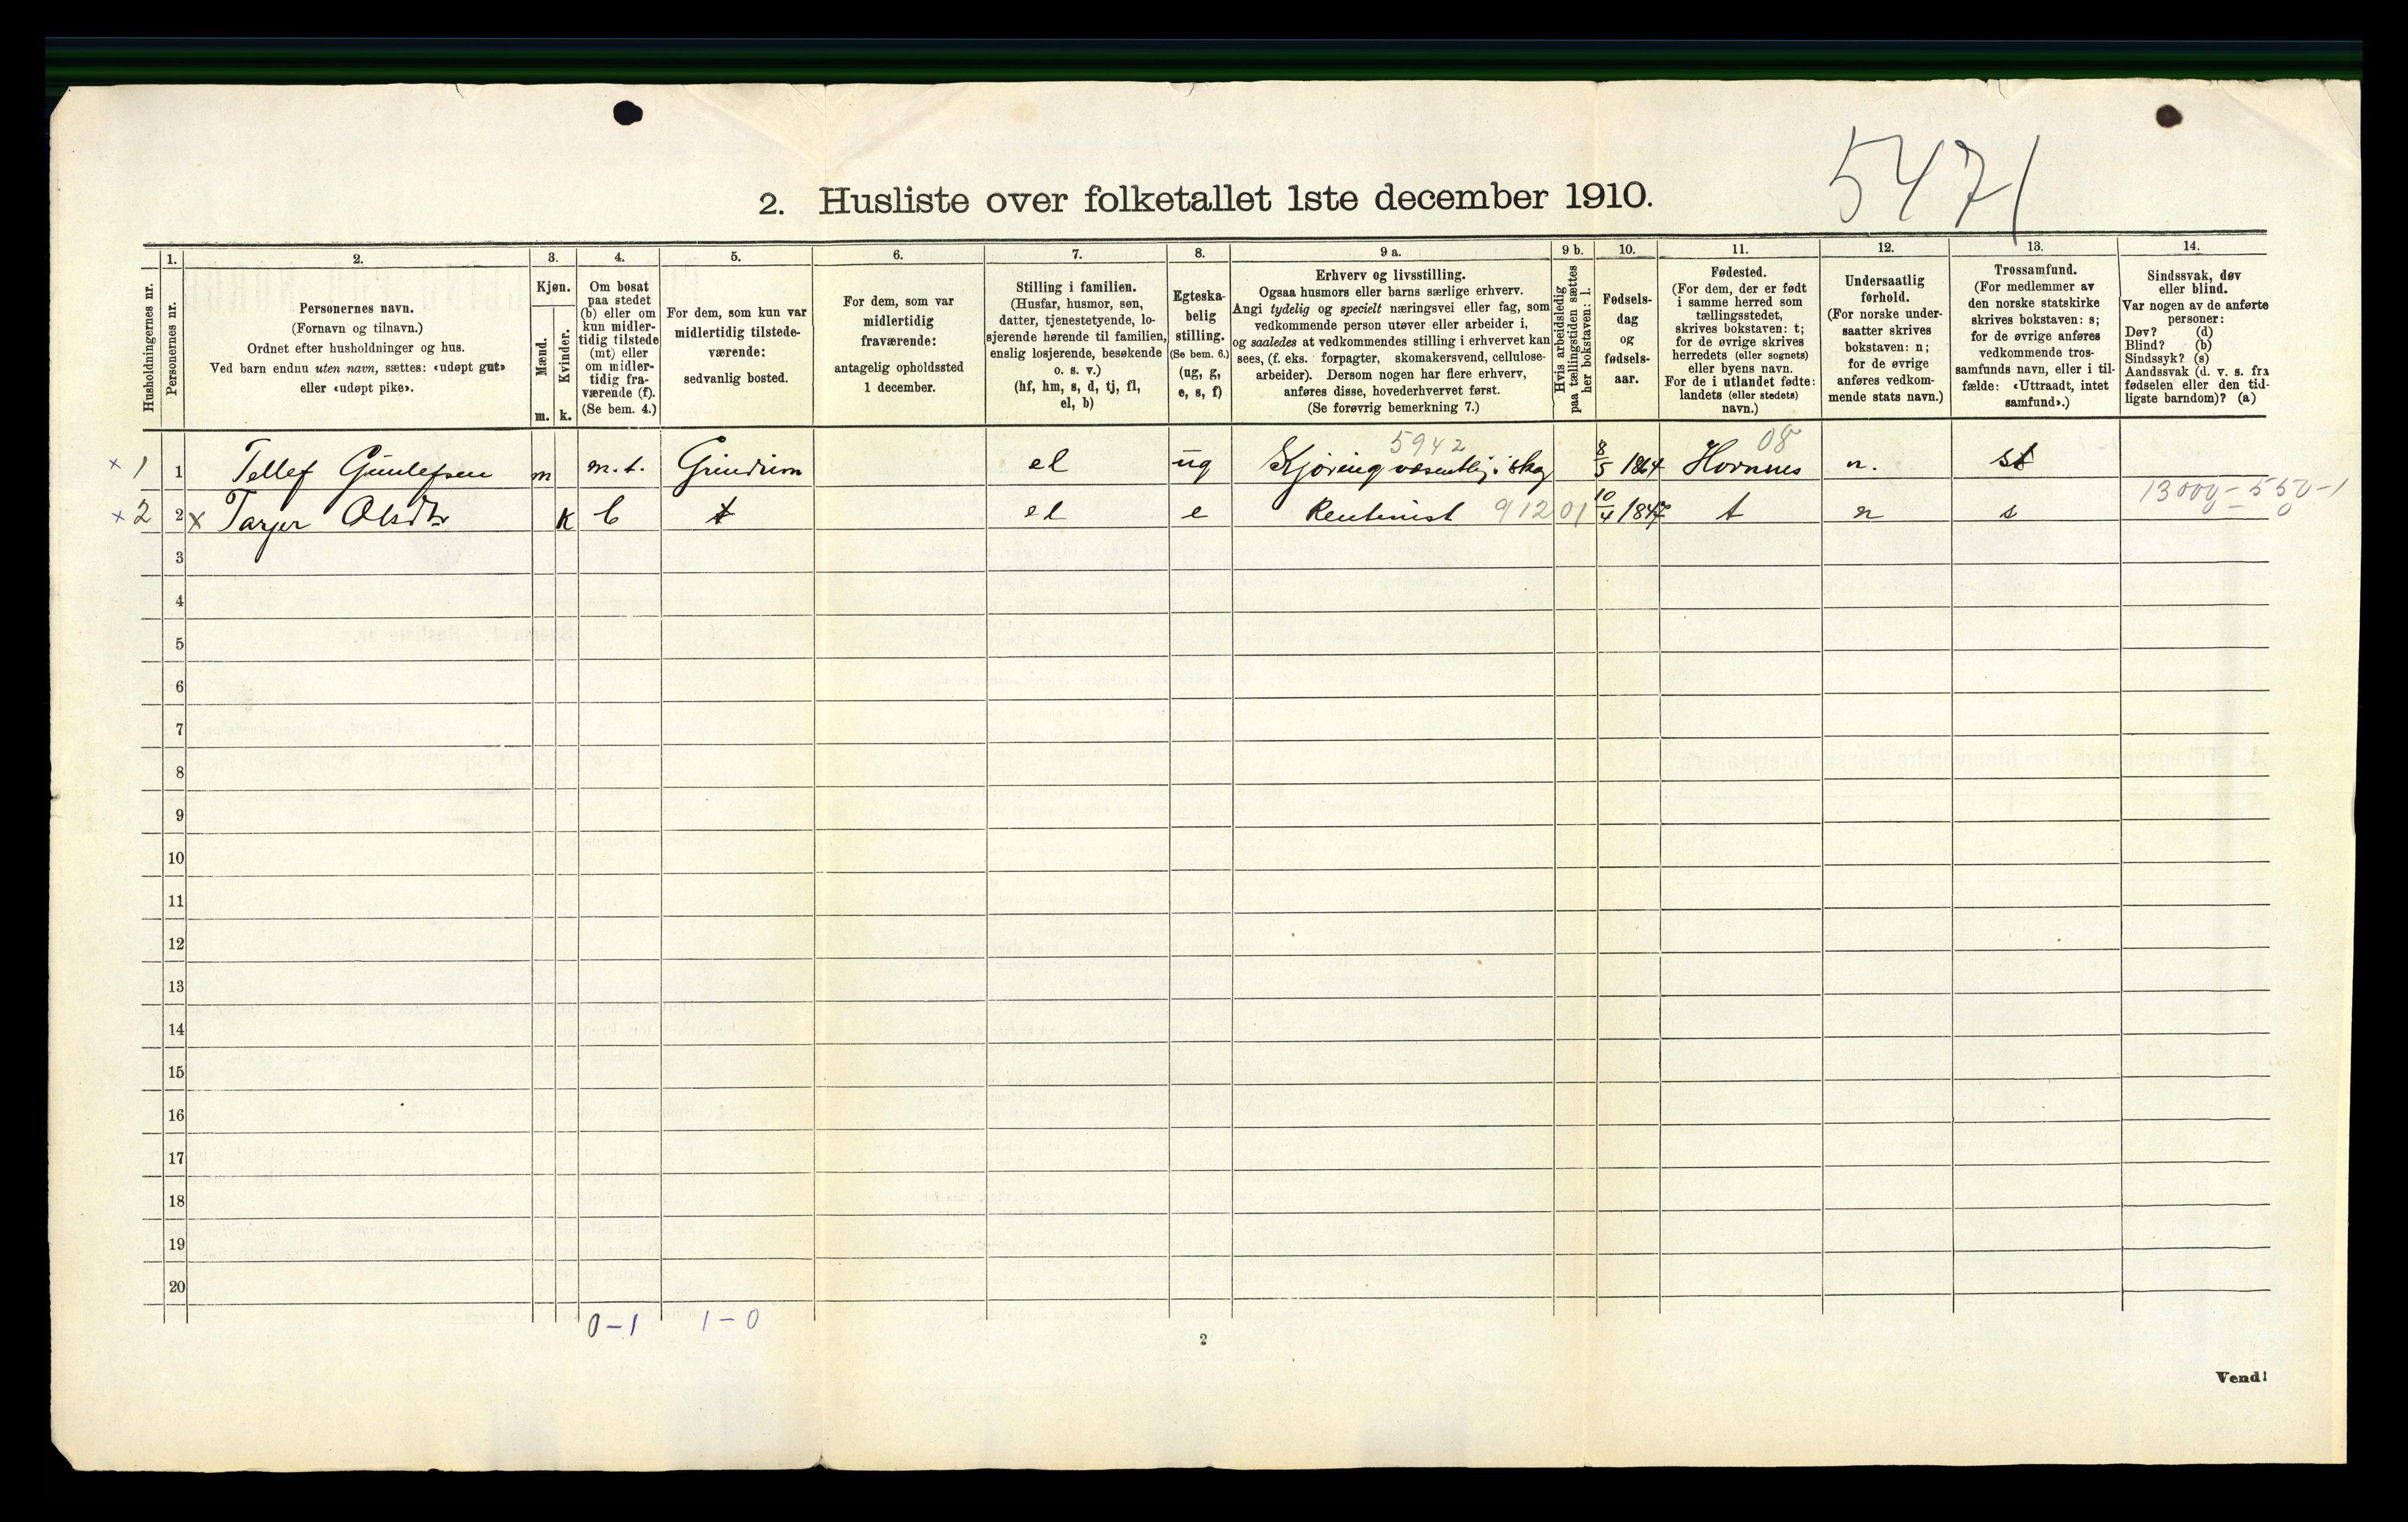 5471
2. Husliste over folketallet 1ste december 1910.
Husholdningernes nr.
1.
Personernes nr.
2.
Personernes navn.
(Fornavn og tilnavn.)
Ordnet efter husholdninger og hus.
Ved barn endnu uten navn, sættes: «udøpt gut»
eller «udøpt pike».
3.
Kjøn.
Mænd.
m.
Kvinder.
k.
4.
Om bosat
paa stedet
(b) eller om
kun midler-
tidig tilstede
(mt) eller
om midler-
tidig fra-
værende (f).
(Se bem. 4.)
5.
For dem, som kun var
midlertidig tilstede-
værende:
sedvanlig bosted.
6.
For dem, som var
midlertidig
fraværende:
antagelig opholdssted
1 december.
7.
Stilling i familien.
(Husfar, husmor, søn,
datter, tjenestetyende, lo-
sjerende hørende til familien,
enslig losjerende, besøkende
o. s. v.)
(hf, hm, s, d, tj, fl,
el, b)
8.
Egteska-
belig
stilling.
(Se bem. 6.)
(ug, g,
e, s, f)
9 a.
Erhverv og livsstilling.
Ogsaa husmors eller barns særlige erhverv.
Angi tydelig og specielt næringsvei eller fag, som
vedkommende person utøver eller arbeider i,
og saaledes at vedkommendes stilling i erhvervet kan
sees, (f. eks. forpagter, skomakersvend, cellulose-
arbeider). Dersom nogen har flere erhverv,
anføres disse, hovederhvervet først.
(Se forøvrig bemerkning 7.)
9 b.
Hvis arbeidsledig
paa tællingstiden sættes
her bokstaven: l.
10.
Fødsels-
dag
og
fødsels-
aar.
11.
Fødested.
(For dem, der er født
i samme herred som
tællingsstedet,
skrives bokstaven: t;
for de øvrige skrives
herredets (eller sognets)
eller byens navn.
For de i utlandet fødte:
landets (eller stedets)
navn.)
12.
Undersaatlig
forhold.
(For norske under-
saatter skrives
bokstaven: n;
for de øvrige
anføres vedkom-
mende stats navn.)
13.
Trossamfund.
(For medlemmer av
den norske statskirke
skrives bokstaven: s;
for de øvrige anføres
vedkommende tros-
samfunds navn, eller i til-
fælde: «Uttraadt, intet
samfund».)
14.
Sindssvak, døv
eller blind.
Var nogen av de anførte
personer:
Døv? (d)
Blind? (b)
Sindssyk? (s)
Aandssvak (d. v. s. fra
fødselen eller den tid-
ligste barndom)? (a)
5942 08
x 1 1 Tellef Gunlefsen m m.t. el ug Kjøring væsentlig i skog 8/5 1864 Hornnes n. st
13000-550-1
x 2 2 x Tarjer Olsdtr k b t el e Rentenist 912 01 10/4 t n s
0
3
4
5
6
7
8
9
10
11
12
13
14
15
16
17
18
19
20
0-1 1-0
2
Vend!